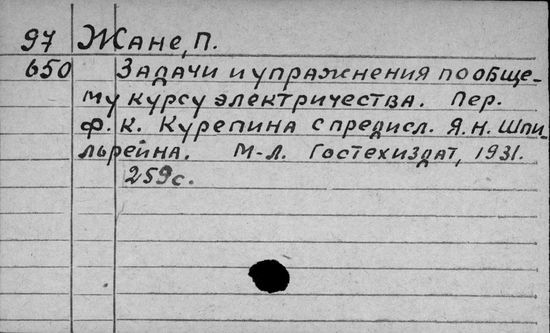 97 Жане, П.
650 Задачи и упражнения по обще-
му курсу электричества. Пер.
Ф. К. Курепина с предисл. Я. Н. Шпи-
льрейна. М-Л. Гостехиздат, 1931.
259 с.